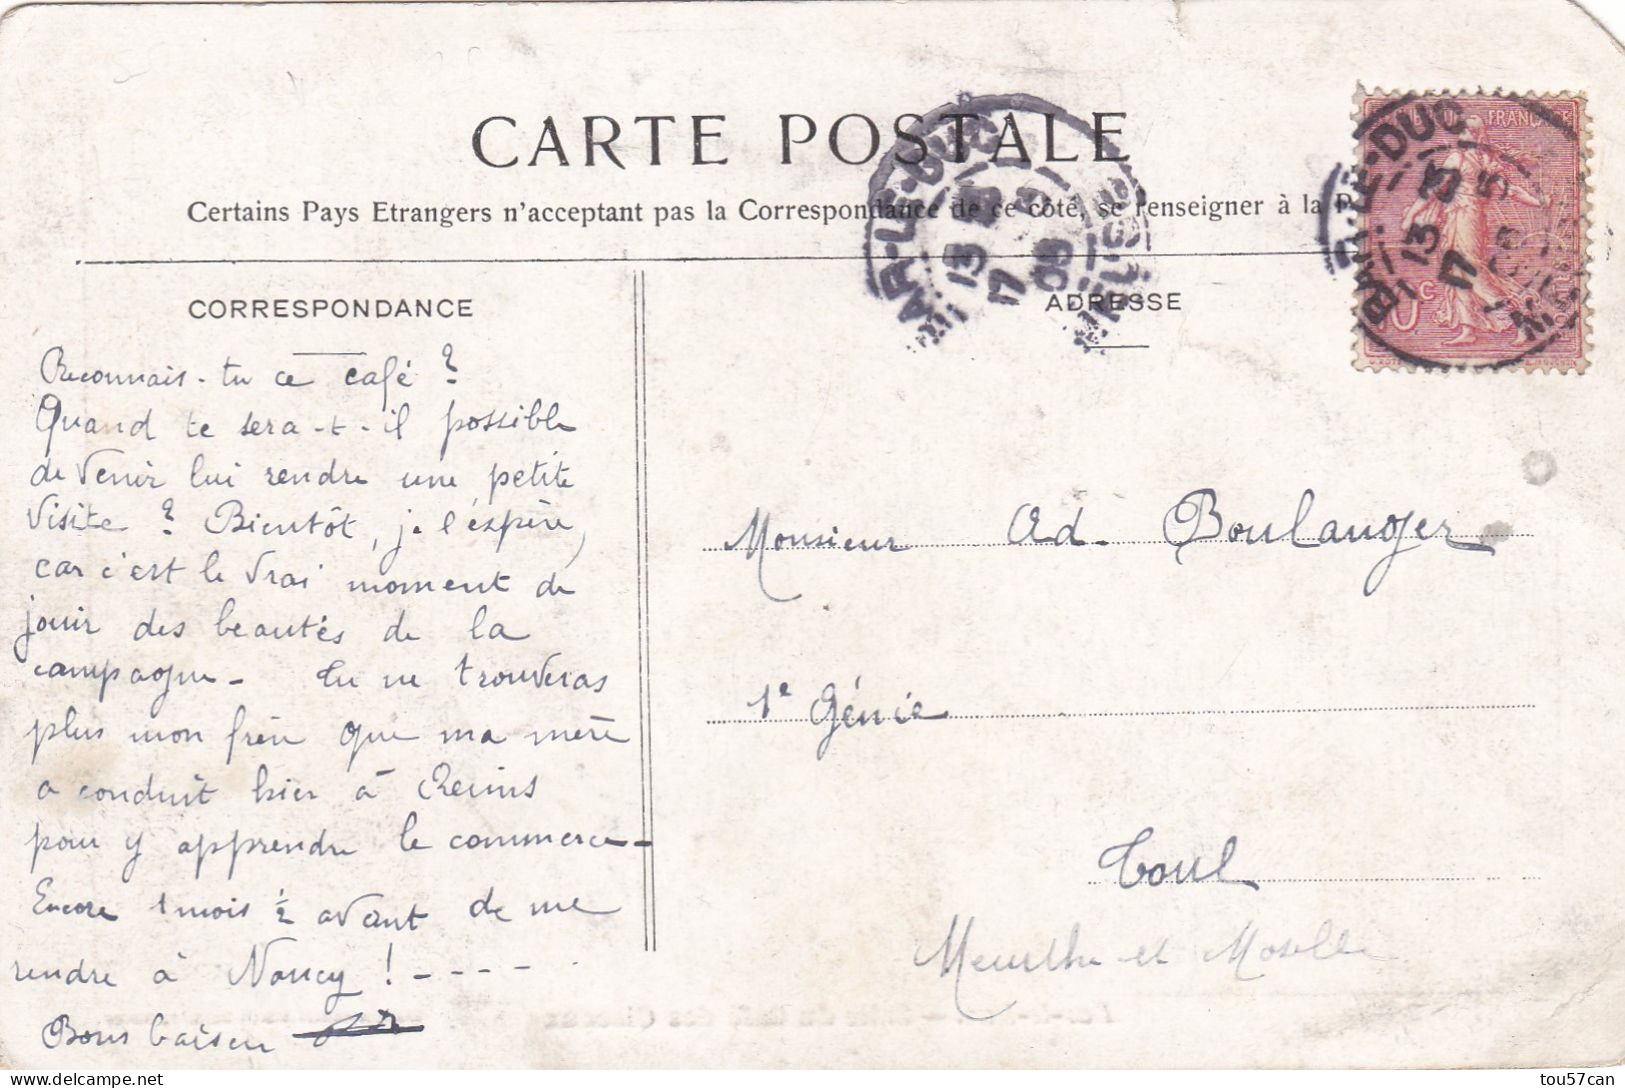 CARTE POSTALE
Certains Pays Etrangers n'acceptant pas la Correspondance de ce côté, se renseigner à la P
CORRESPONDANCE
Reconnais-tu ce café ?
Quand te sera-t-il possible
de venir lui rendre une petite
visite ? Bientôt, je l'espère,
car c'est le vrai moment de
jouir des beautés de la
campagne - tu ne trouveras
plus mon frère que ma mère
a conduit hier à Reims
pour y apprendre le commerce -
Encore 1 mois 1/2 avant de me
rendre à Nancy ! - - - -
Bons baisers
ADRESSE
Monsieur Ad. Boulanger
1e Génie
Toul
Meurthe et Moselle
BAR-LE-DUC
13 5
17
05
FRANÇAISE
BAR-LE-DUC
13 5
17
tou57can